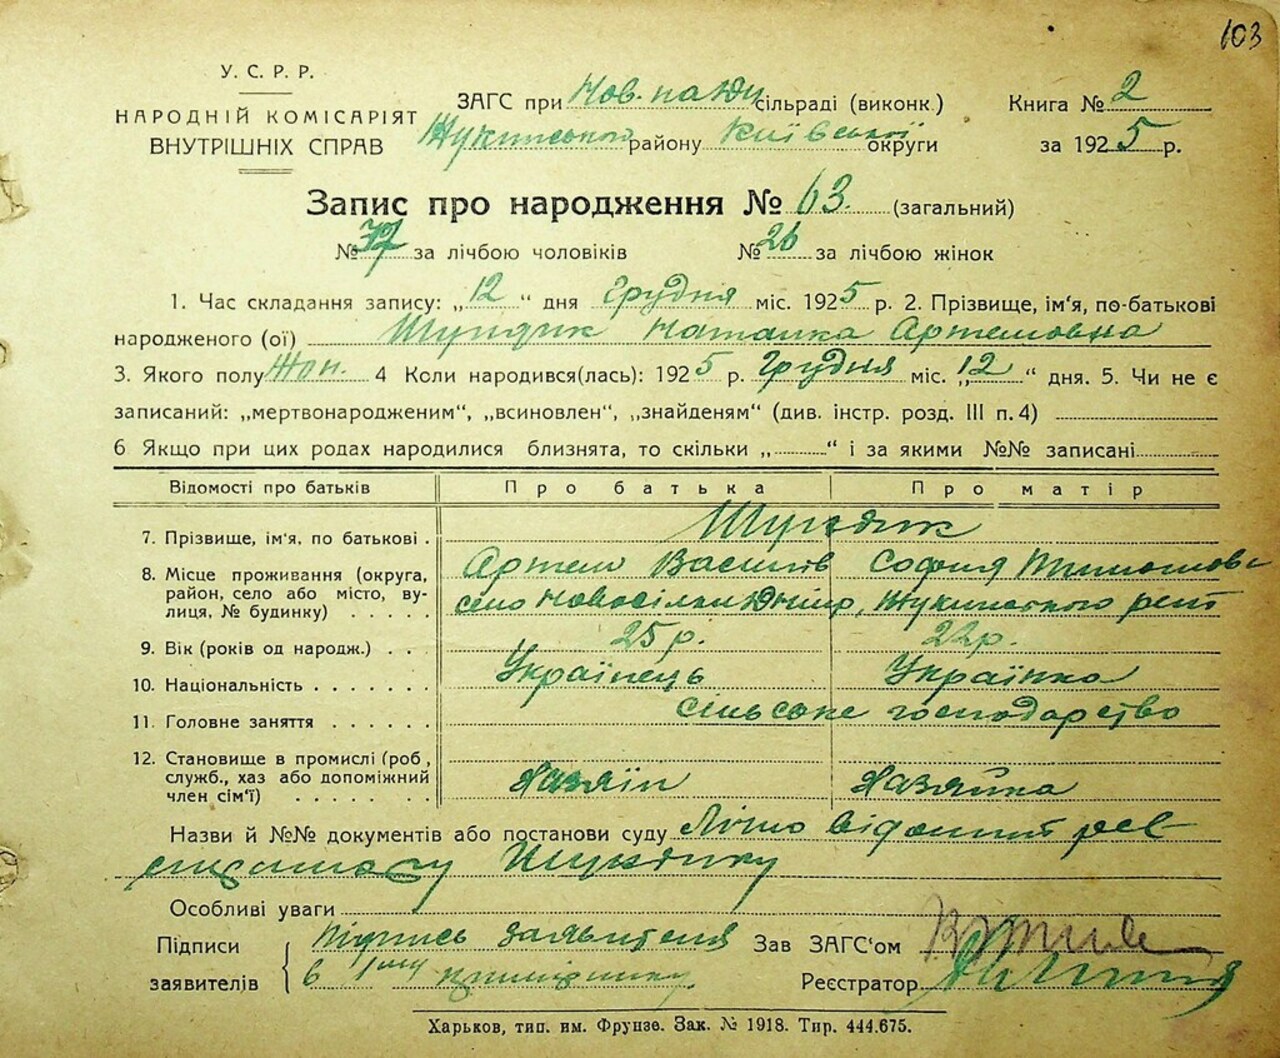 103
У. С. Р. Р.
НАРОДНІЙ КОМІСАРІЯТ
ВНУТРІШНІХ СПРАВ
ЗАГС при Нов. на Дн. сільраді (виконк.)
Книга № 2
району Київської округи
за 1925 р.
Запис про народження № 63. (загальний)
№ 37 за лічбою чоловіків № 26 за лічбою жінок
1. Час складання запису: „12“ дня Грудня міс. 1925 р. 2. Прізвище, ім'я, по-батькові
народженого (ої) Шундик Наталка Артемовна
3. Якого полу Жін. 4 Коли народився(лась): 1925 р. Грудня міс. „12“ дня. 5. Чи не є
записаний: „мертвонародженим“, „всиновлен“, „знайденям“ (див. інстр. розд. III п. 4)
6 Якщо при цих родах народилися близнята, то скільки „ “ і за якими №№ записані
Відомості про батьків Про батька Про матір
7. Прізвище, ім'я, по батькові . Шундик
Артем Василів София
8. Місце проживання (округа,
район, село або місто, ву-
лиця, № будинку) . . . . село Новосілки
9. Вік (років од народж.) . . . 25 р. 22 р.
10. Національність . . . . . . . Українець Українка
11. Головне заняття . . . . . . сільське господарство
12. Становище в промислі (роб,
служб., хаз або допоміжний
член сім'ї) . . . . . . . Хазяїн Хазяйка
Назви й №№ документів або постанови суду Лічно відомий
Шундику
Особливі уваги
Підписи
заявителів
Підпись заявителя
в 1му примірнику.
Зав ЗАГС'ом
Реєстратор
Харьков, тип. им. Фрунзе. Зак. № 1918. Тир. 444.675.